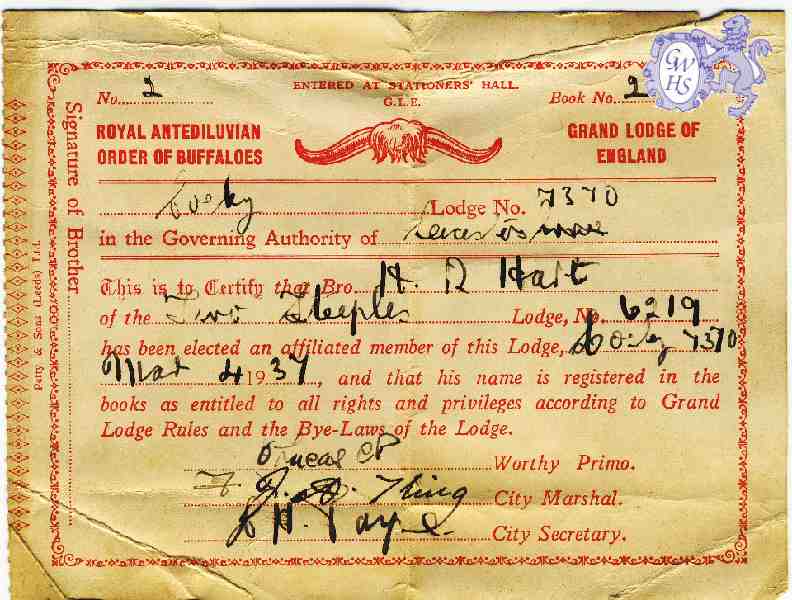 ENTERED AT STATIONERS' HALL.
No. 2 G.L.E. Book No. 2
ROYAL ANTEDILUVIAN ORDER OF BUFFALOES
GRAND LODGE OF ENGLAND
GWHS
Corby Lodge No. 7370
in the Governing Authority of
This is to Certify that Bro. H. R Hart
of the Two Steeples Lodge, No. 6219
has been elected an affiliated member of this Lodge, Corby 7370
Mar 4 1937, and that his name is registered in the
books as entitled to all rights and privileges according to Grand
Lodge Rules and the Bye-Laws of the Lodge.
CP Worthy Primo.
King City Marshal.
H. Payne City Secretary.
Signature of Brother
Petty & Sons (Leeds) Ltd.